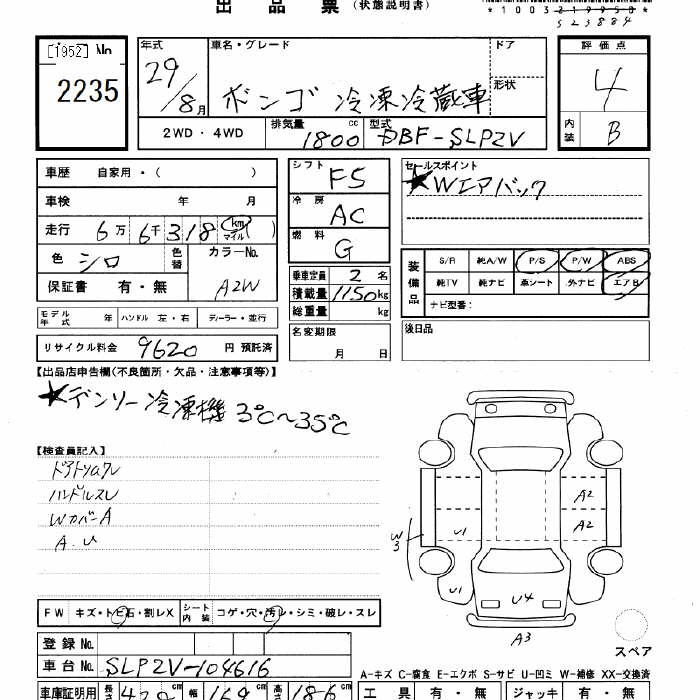 出品票(状態説明書)
*1003219950*
523884
[1952] No
2235
年式 車名・グレード ドア
29/8月 ボンゴ 冷凍冷蔵車 形状
2WD・4WD 排気量 1800 cc 型式 DBF-SLP2V
評価点
4
内装 B
車歴 自家用・( )
車検 年 月
走行 6万6千318 km マイル ( )
色 シロ 色替 カラーNo.
保証書 有・無 A2W
モデル年式 年 ハンドル 左・右 ディーラー・並行
リサイクル料金 9620 円 預託済
シフト F5
冷房 AC
燃料 G
乗車定員 2 名
積載量 1150 kg
総重量 kg
名変期限
月 日
セールスポイント
★Wエアバック
装備品 S/R 純A/W P/S P/W ABS
純TV 純ナビ 革シート 外ナビ エアB
ナビ型番:
後日品
【出品店申告欄(不良箇所・欠品・注意事項等)】
★デンソー冷凍機 3℃~35℃
【検査員記入】
ドアトリムワレ
ハンドルスレ
WカバーA
A.U
W3
U1
U1
A2
A2
U4
A3
スペア
FW キズ・トビ石・割レX シート内装 コゲ・穴・汚レ・シミ・破レ・スレ
登録No.
車台No. SLP2V-104616
A-キズ C-腐食 E-エクボ S-サビ U-凹ミ W-補修 XX-交換済
車庫証明用 長 cm 幅 169 cm 高 186 cm
工具 有・無 ジャッキ 有・無